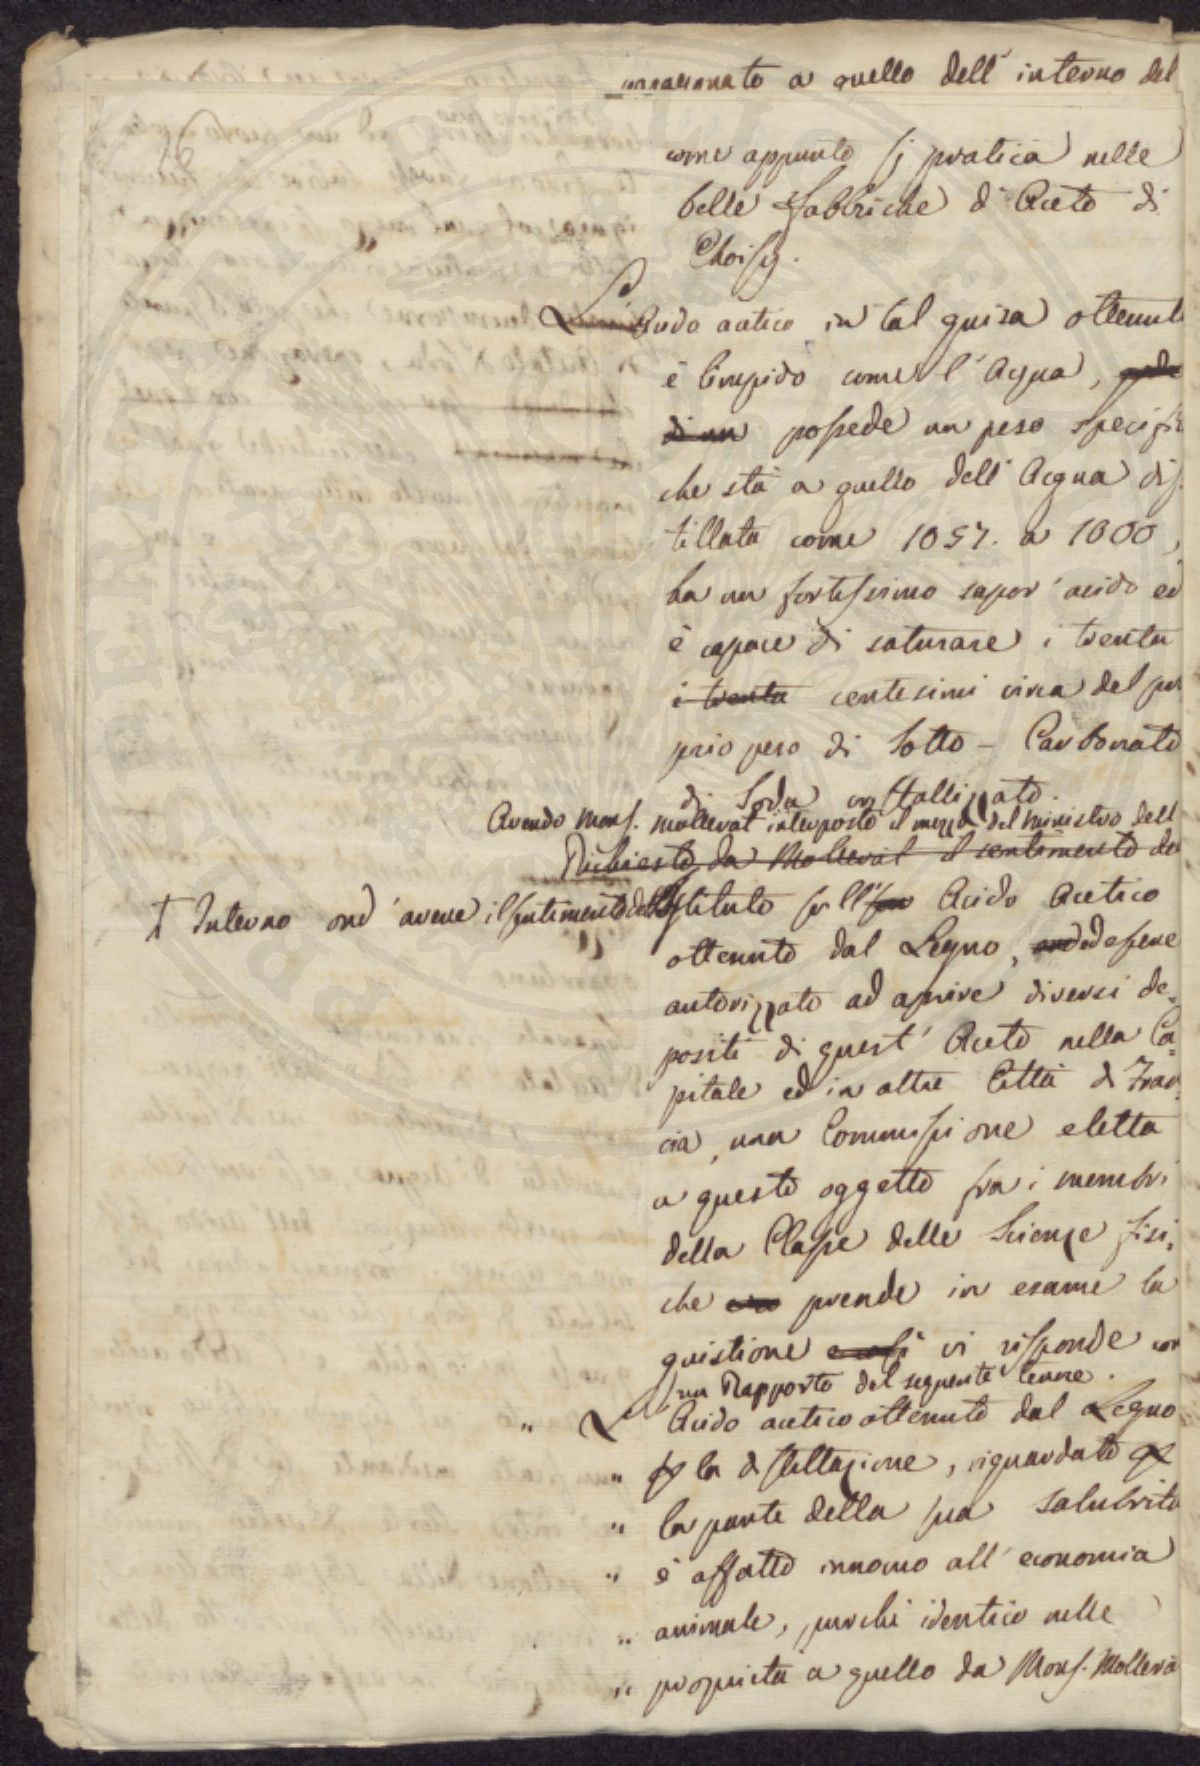 a quello dell' interno del
come appunto si pratica nelle
belle fabbriche d' Aceto di
Choisy.
L' Acido acetico in tal guisa ottenut
è limpido come l' Acqua,
di un possede un peso specifi
che stà a quello dell' Acqua dis
tillata come 1057. a 1000,
ha un fortissimo sapor' acido ed
è capace di saturare i trenta
i trenta centesimi circa del pro
prio peso di Sotto - Carbonato
di Soda cristallizzato.
Avendo Mons. Mollerat interposto il mezzo del ministro dell
Richiesto da Mollerat il sentimento de
† Interno ond' avere il sentimento dell' Istituto sull' suo Acido Acetico
ottenuto dal Legno, ed essere
autorizzato ad aprire diversi de=
positi di quest' Aceto nella Ca=
pitale ed in altre Città di Fran=
cia, una Commissione eletta
a questo oggetto fra i membri
della Classe delle Scienze fisi=
che prende in esame la
quistione e così vi risponde con
un Rapporto del seguente tenore.
" L' Acido acetico ottenuto dal Legno
" la distillazione, riguardato
" la parte della sua salubrità
" è affatto innocuo all' economia
" animale, purchè identico nelle
" proprietà a quello da Mons. Mollera